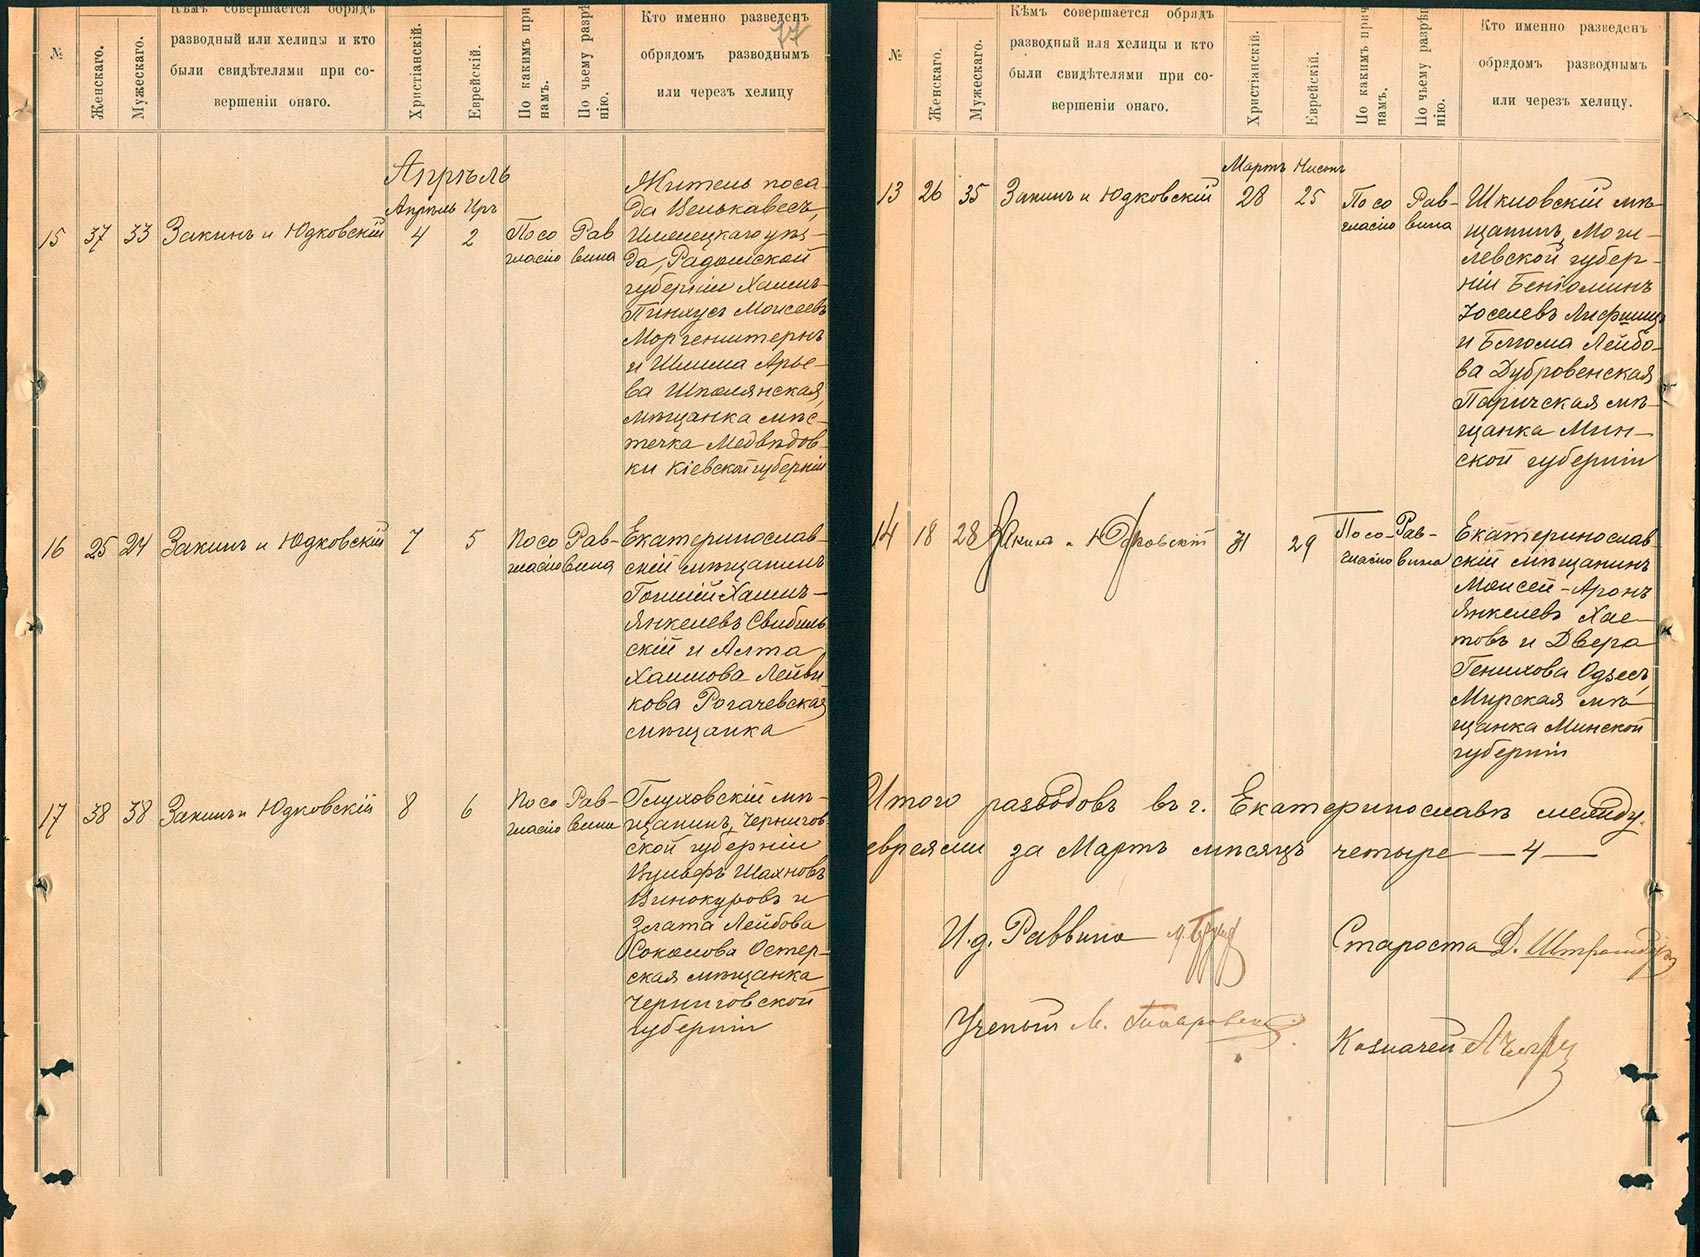 №
Женскаго.
Мужескаго.
Кѣмъ совершается обрядъ
разводный или хелицы и кто
были свидѣтелями при со-
вершеніи онаго.
Христіанскій.
Еврейскій.
По какимъ при
намъ.
По чьему разрѣ
нію.
Кто именно разведенъ
обрядомъ разводнымъ
или черезъ хелицу
77
Апрѣль
Апрѣль Иръ
15 37 33 Закинъ и Юдковскій 4 2
По со
гласію
Рав
вина
Житель поса-
да
уѣз-
да, Радомской
губерніи Хаимъ-
Пинхусъ Моисеевъ
Моргенштернъ
и Шлима Арье-
ва Шполянская,
мѣщанка мѣс-
течка Медвѣдов-
ки Кіевской губерніи
16 25 24 Закинъ и Юдковскій 7 5
По со
гласію
Рав-
вина
Екатеринослав-
скій мѣщанинъ
Хаимъ-
Янкелевъ
скій и Алта
Хаимова
кова Рогачевская
мѣщанка
17 38 38 Закинъ и Юдковскій 8 6
По со
гласію
Рав-
вина
Глуховскій мѣ-
щанинъ, Чернигов-
ской губерніи
Вульфъ Шахновъ
Винокуровъ и
Злата Лейбова
Соколова Остер-
ская мѣщанка
Черниговской
губерніи
№
Женскаго.
Мужескаго.
Кѣмъ совершается обрядъ
разводный или хелицы и кто
были свидѣтелями при со-
вершеніи онаго.
Христіанскій.
Еврейскій.
По какимъ прич
намъ.
По чьему разрѣш
нію.
Кто именно разведенъ
обрядомъ разводнымъ
или черезъ хелицу.
Мартъ Нисонъ
13 26 35 Закинъ и Юдковскій 28 25
По со
гласію
Рав-
вина
Шкловскій мѣ-
щанинъ, Моги-
левской губер-
ніи Беніоминъ
Іоселевъ Лифшицъ
и Блюма Лейбо-
ва Дубровенская
Паричская мѣ-
щанка Мин-
ской губерніи
14 18 28 Закинъ и Юдковскій 31 29
По со-
гласію
Рав-
вина
Екатеринослав-
скій мѣщанинъ
Моисей-Аронъ
Янкелевъ Хае-
товъ и Двера
Генихова
Мирская мѣ-
щанка Минской
губерніи
Итого разводовъ въ г. Екатеринославѣ между
евреями за Мартъ мѣсяцъ четыре —4—
И.д. Раввина
Староста Д.
Ученый М.
Казначей